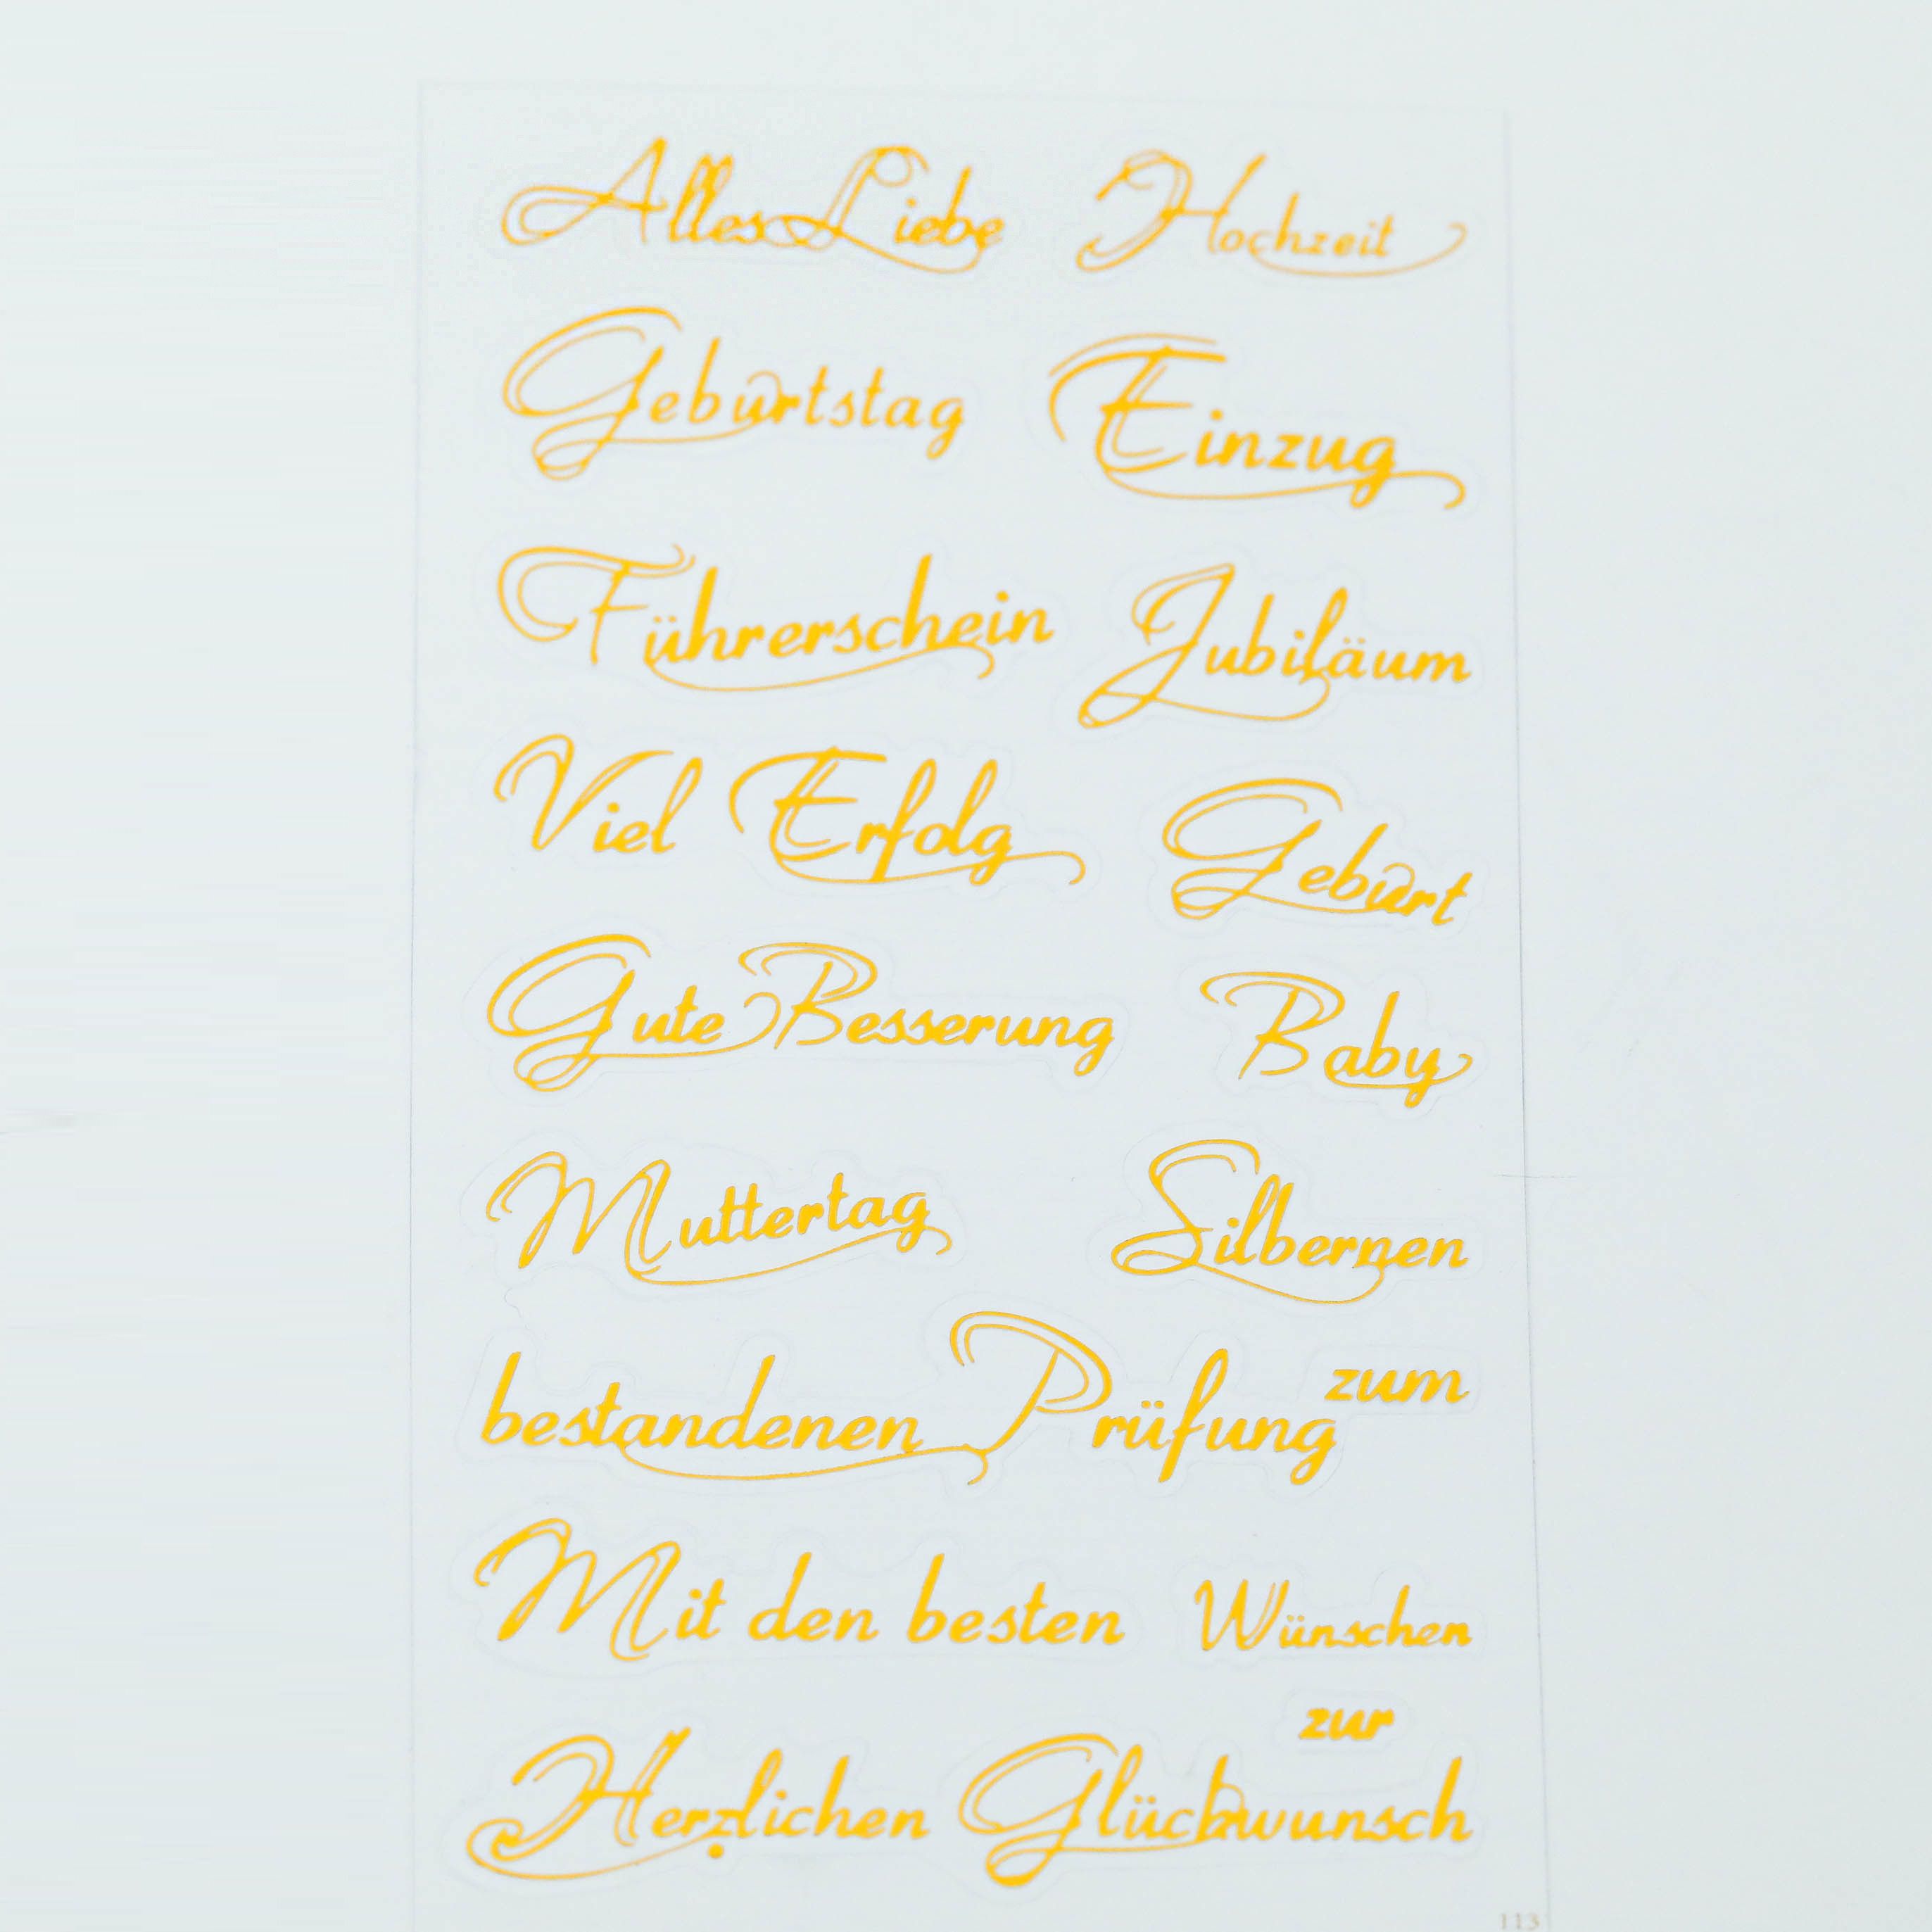 Alles Liebe Hochzeit
Geburtstag Einzug
Führerschein Jubiläum
Viel Erfolg Geburt
Gute Besserung Baby
Muttertag Silbernen
bestandenen Prüfung zum
Mit den besten Wünschen
zur
Herzlichen Glückwunsch
113